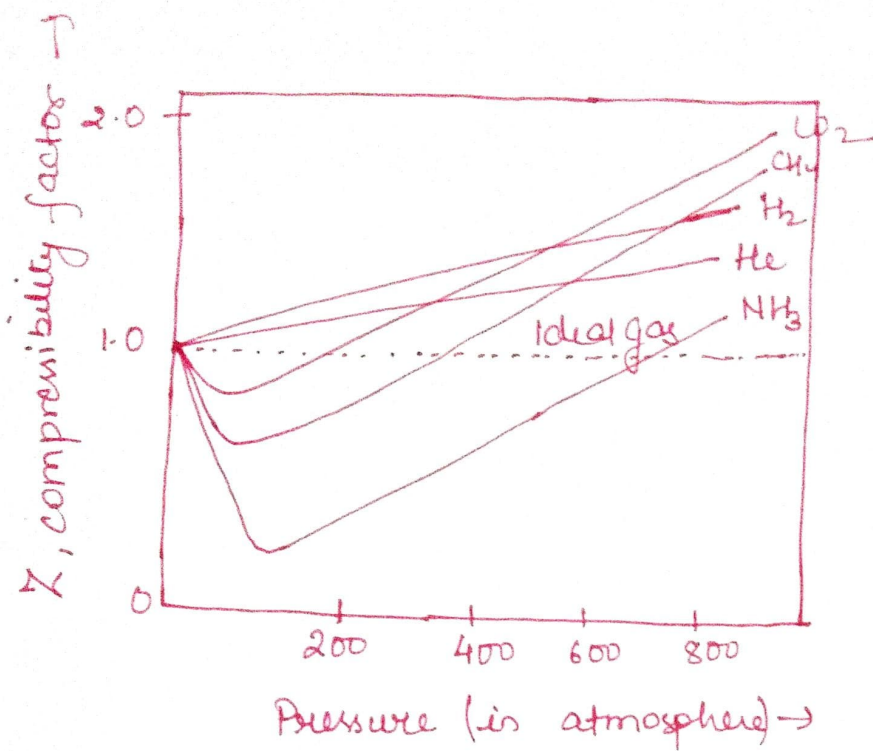 Z, compressibility factor →
2.0
CO2
CH4
H2
He
NH3
1.0
Ideal gas
0
200 400 600 800
Pressure (is atmosphere) →